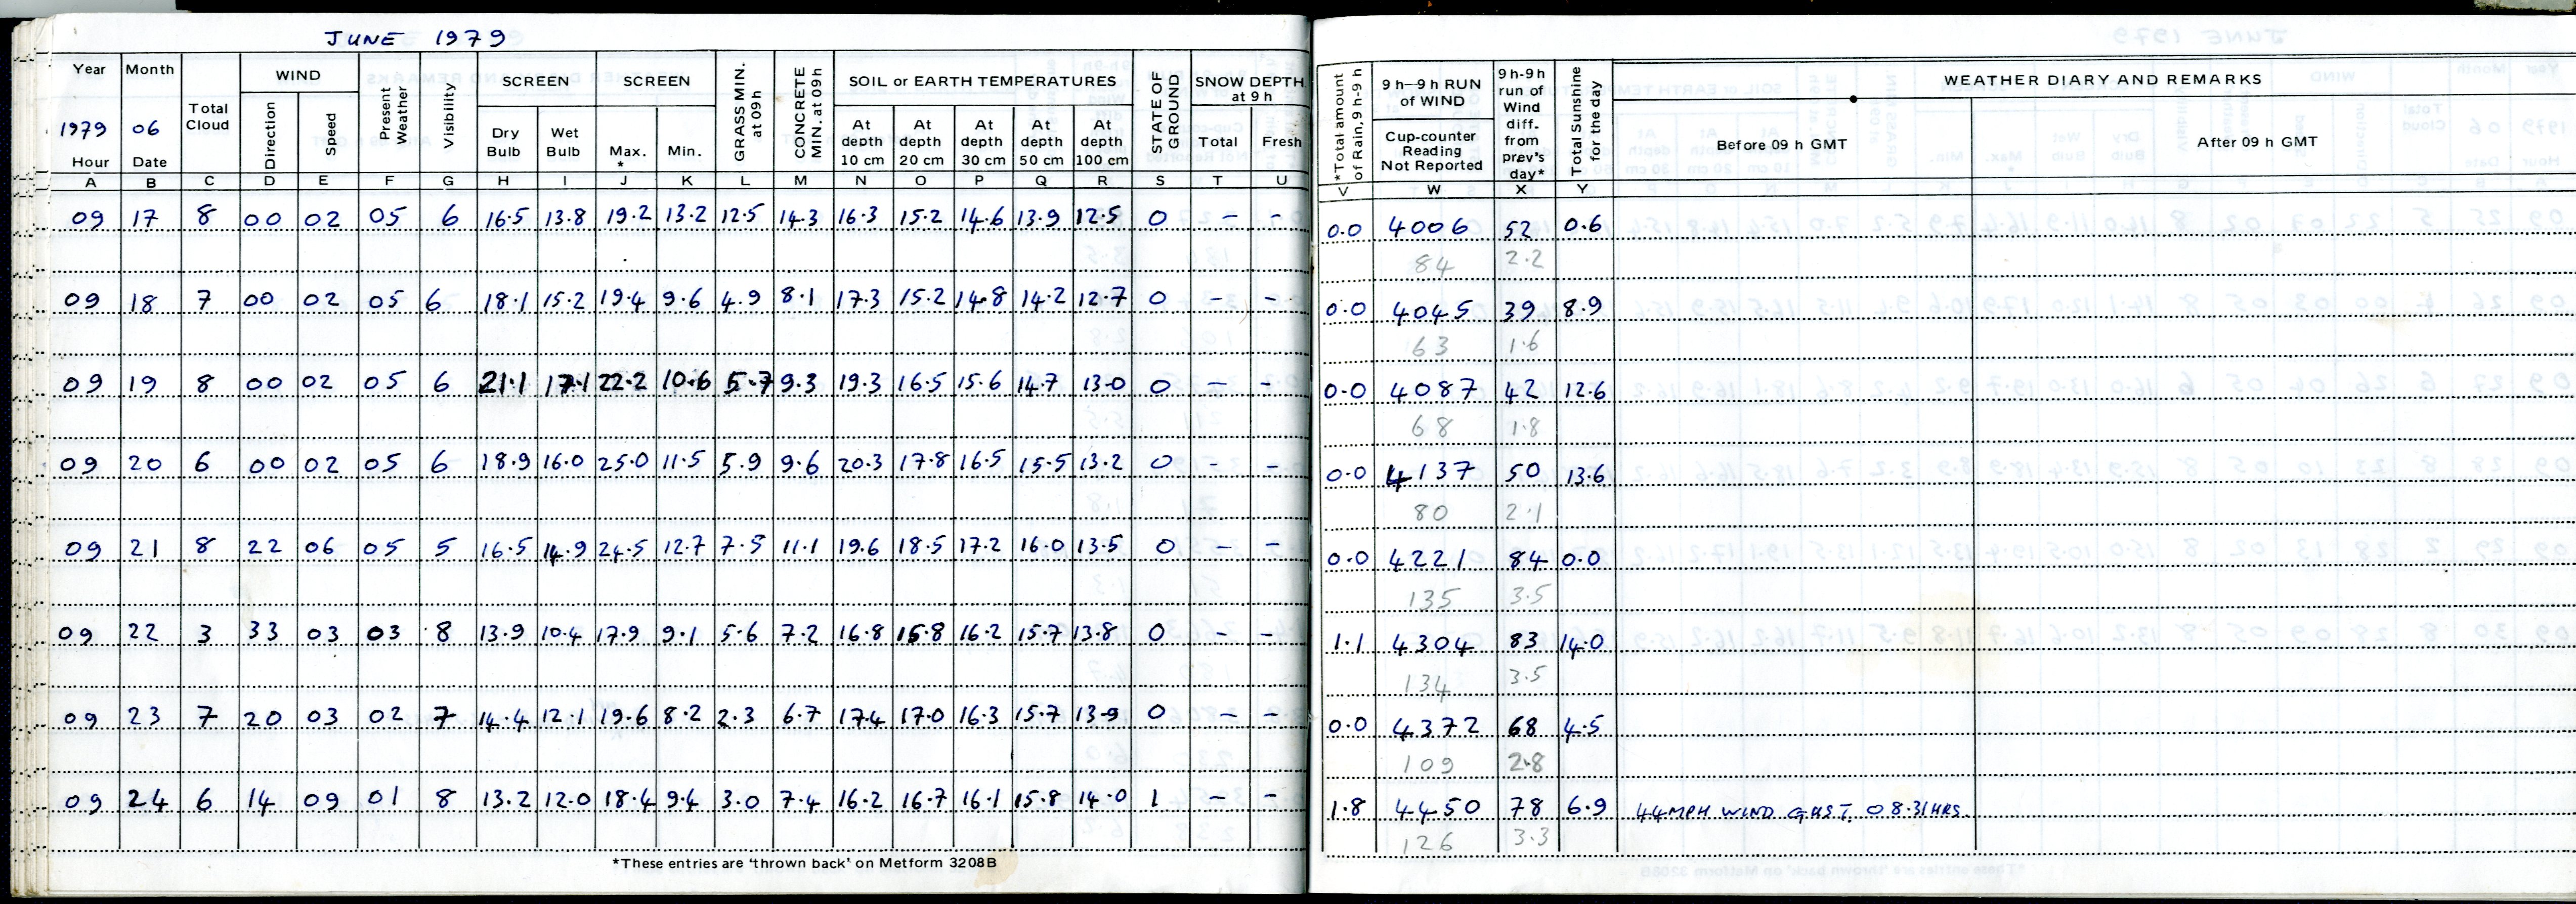 JUNE 1979
Year Month Total Cloud WIND Present Weather Visibility SCREEN SCREEN GRASS MIN. at 09h CONCRETE MIN. at 09h SOIL or EARTH TEMPERATURES STATE OF GROUND SNOW DEPTH at 9 h *Total amount of Rain, 9 h-9 h 9 h–9 h RUN of WIND 9 h-9 h run of Wind diff. from prev's day* Total Sunshine for the day WEATHER DIARY AND REMARKS
1979 06 Direction Speed Dry Bulb Wet Bulb Max. * Min. At depth 10 cm At depth 20 cm At depth 30 cm At depth 50 cm At depth 100 cm Total Fresh Cup-counter Reading Not Reported Before 09 h GMT After 09 h GMT
Hour Date
A B C D E F G H I J K L M N O P Q R S T U V W X Y
09 17 8 00 02 05 6 16.5 13.8 19.2 13.2 12.5 14.3 16.3 15.2 14.6 13.9 12.5 0 – – 0.0 4006 52 0.6
84 2.2
09 18 7 00 02 05 6 18.1 15.2 19.4 9.6 4.9 8.1 17.3 15.2 14.8 14.2 12.7 0 – – 0.0 4045 39 8.9
63 1.6
09 19 8 00 02 05 6 21.1 17.1 22.2 10.6 5.7 9.3 19.3 16.5 15.6 14.7 13.0 0 – – 0.0 4087 42 12.6
68 1.8
09 20 6 00 02 05 6 18.9 16.0 25.0 11.5 5.9 9.6 20.3 17.8 16.5 15.5 13.2 0 – – 0.0 4137 50 13.6
80 2.1
09 21 8 22 06 05 5 16.5 14.9 24.5 12.7 7.5 11.1 19.6 18.5 17.2 16.0 13.5 0 – – 0.0 4221 84 0.0
135 3.5
09 22 3 33 03 03 8 13.9 10.4 17.9 9.1 5.6 7.2 16.8 16.8 16.2 15.7 13.8 0 – – 1.1 4304 83 14.0
134 3.5
09 23 7 20 03 02 7 14.4 12.1 19.6 8.2 2.3 6.7 17.4 17.0 16.3 15.7 13.9 0 – – 0.0 4372 68 4.5
109 2.8
09 24 6 14 09 01 8 13.2 12.0 18.4 9.4 3.0 7.4 16.2 16.7 16.1 15.8 14.0 1 – – 1.8 4450 78 6.9 44MPH WIND GUST. 08.31HRS.
126 3.3
*These entries are 'thrown back' on Metform 3208B